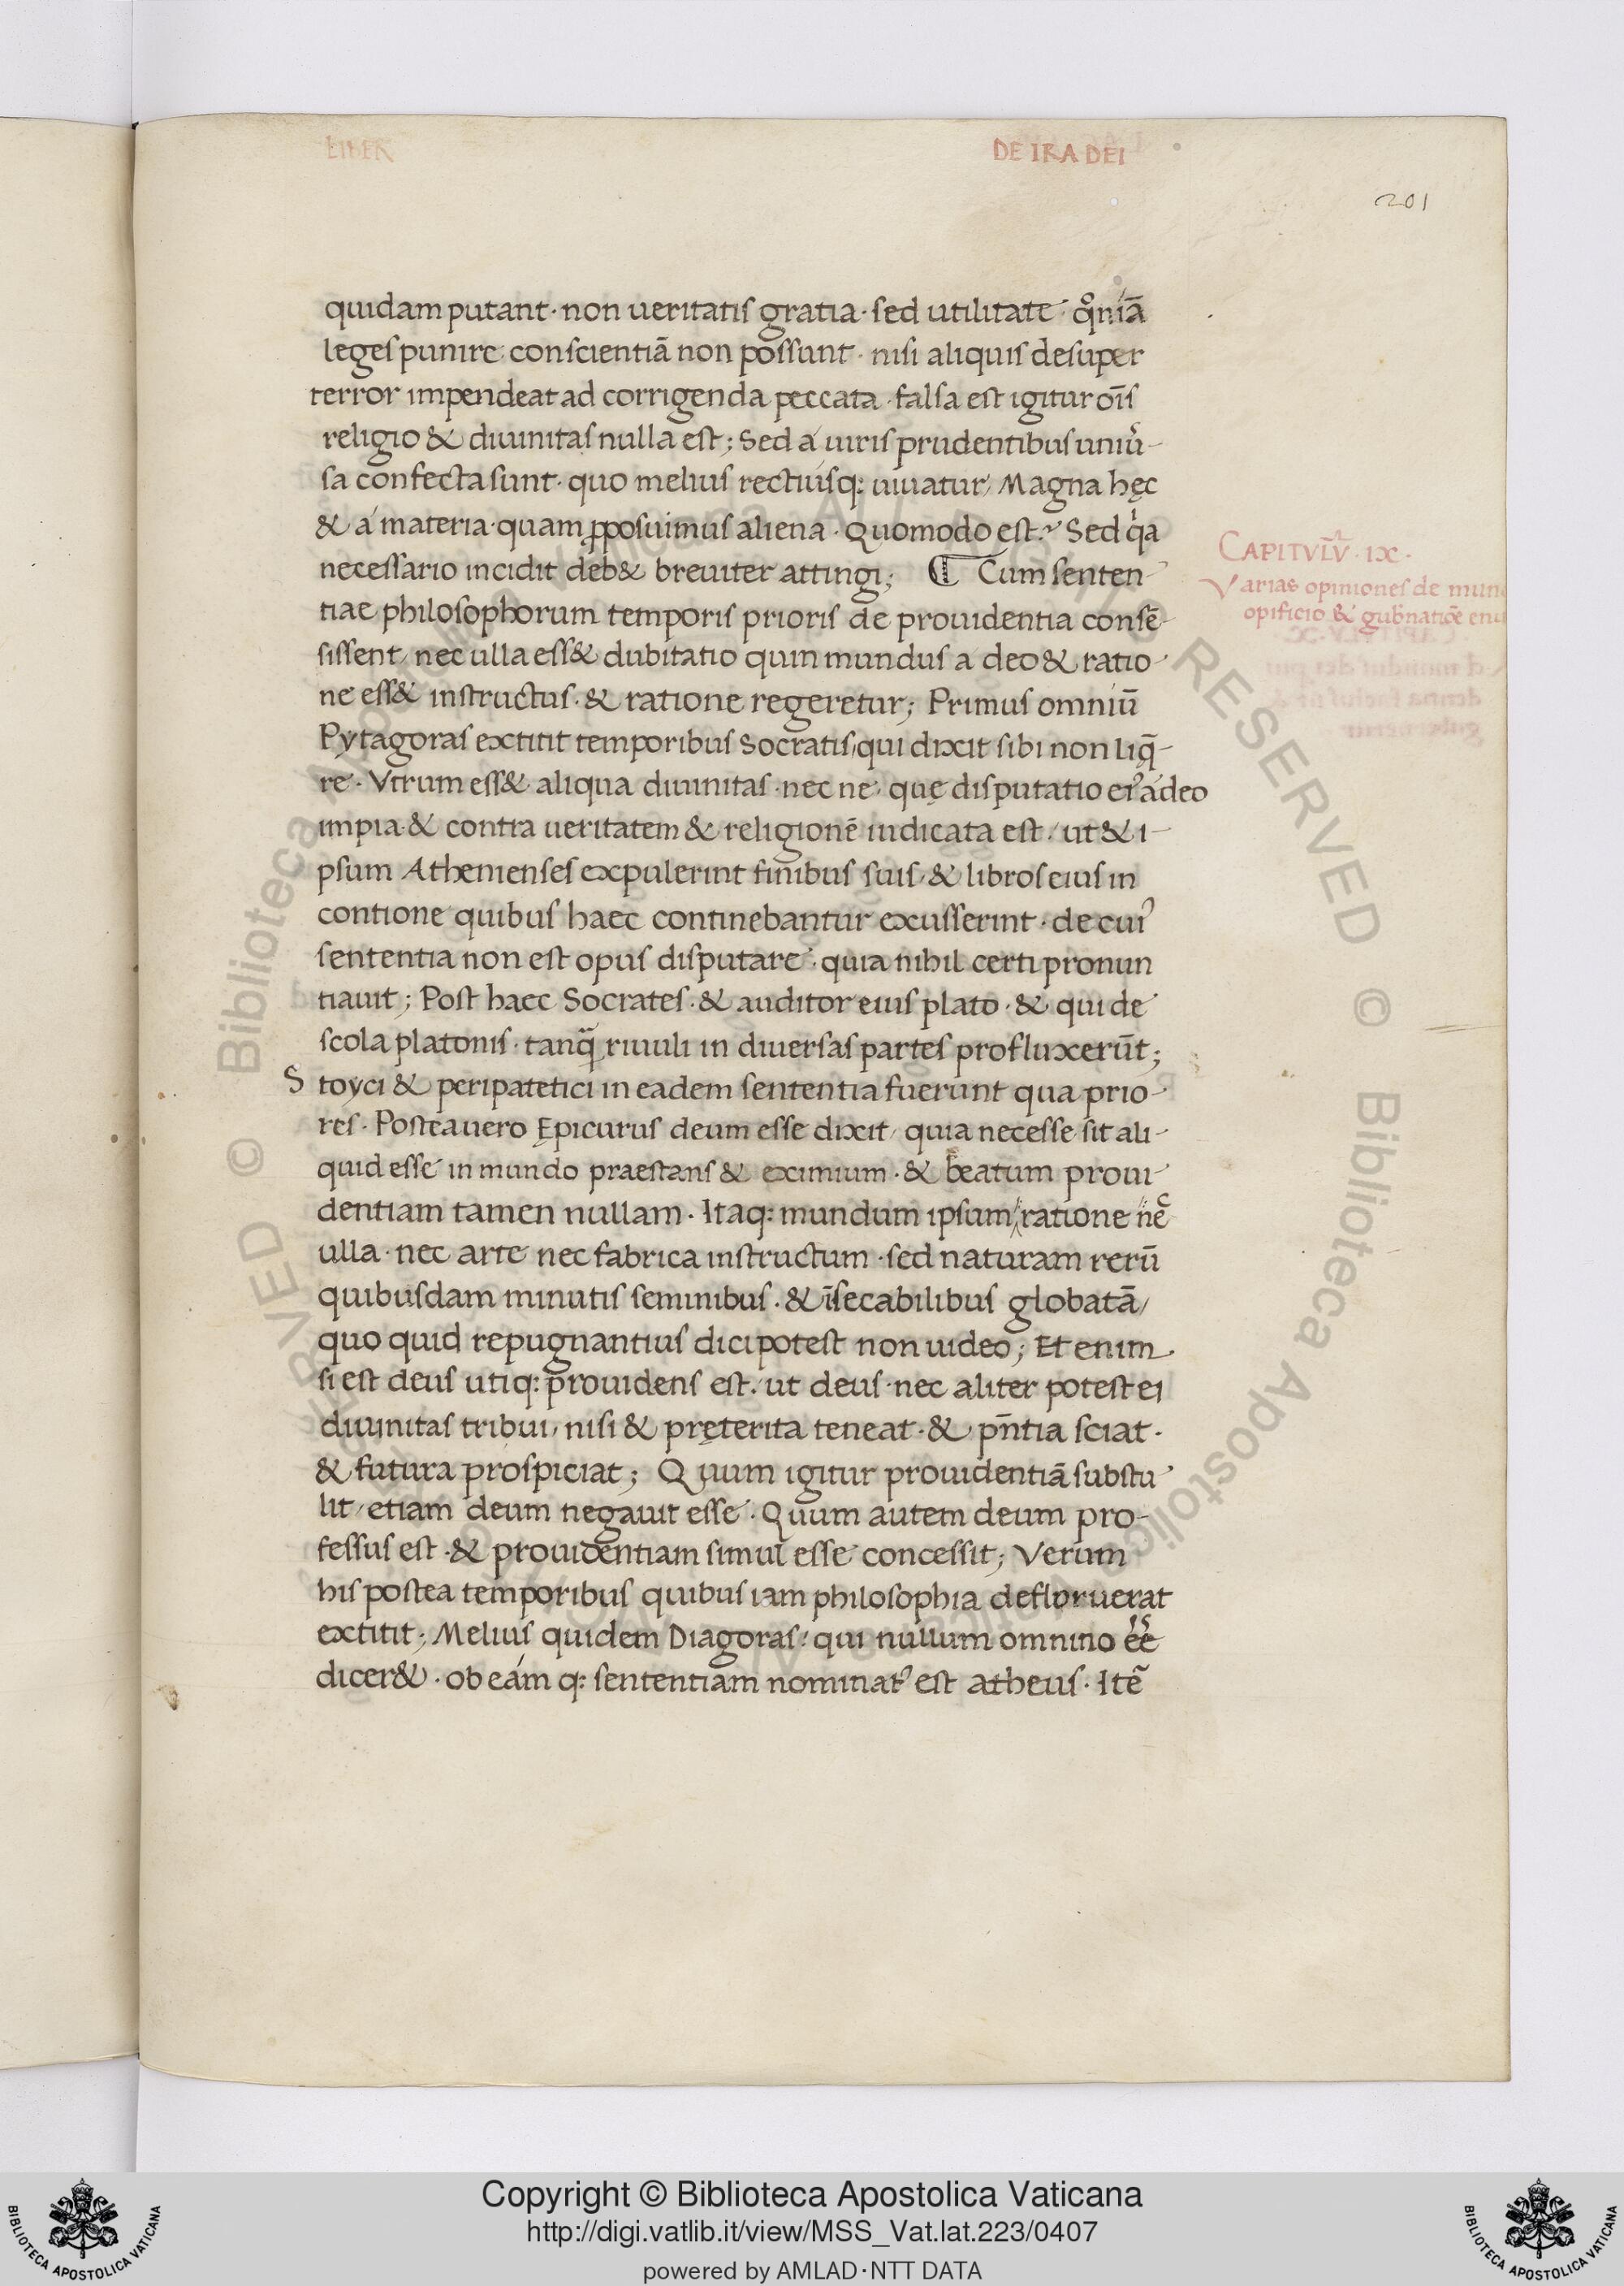 LIBER DE IRA DEI
201
quidam putant· non ueritatis gratia· sed utilitate· qm̊niā
leges punire conscientiā non possunt· nisi aliquis desuper
terror impendeat ad corrigenda peccata· falsa est igitur oīs
religio & diuinitas nulla est; Sed a uiris prudentibus uniu̓-
sa confecta sunt· quo melius rectiusq: uiuatur, Magna hęc
& a materia· quam ꝓposuimus aliena· Quomodo est? Sed qa
necessario incidit deb& breuiter attingi; ₵ Cum senten-
tiae philosophorum temporis prioris de prouidentia consē-
sissent, nec ulla ess& dubitatio quin mundus a deo & ratio-
ne ess& instructus· & ratione regeretur; Primus omniū
Pytagoras extitit temporibus Socratis, qui dixit sibi non liq̄-
re· Vtrum ess& aliqua diuinitas· nec ne· quę disputatio ei᾿ adeo
impia & contra ueritatem & religionē iudicata est· ut & i-
psum Athenienses expulerint finibus suis, & libros eius in
contione quibus haec continebantur exusserint· de cui᾿
sententia non est opus disputare· quia nihil certi pronun
tiauit; Post haec Socrates· & auditor eius plato· & qui de
scola platonis· tanq̄ riuuli in diuersas partes profluxerūt;
S toyci & peripatetici in eadem sententia fuerunt qua prio-
res· Postea uero Epicurus deum esse dixit, quia necesse sit ali-
quid esse in mundo praestans & eximium· & beatum proui-
dentiam tamen nullam· Itaq: mundum ipsum ratione nec
ulla· nec arte nec fabrica instructum· sed naturam rerū
quibusdam minutis seminibus· & īsecabilibus globatā,
quo quid repugnantius dici potest non uideo; Et enim·
si est deus utiq: prouidens est· ut deus· nec aliter potest ei
diuinitas tribui, nisi & pręterita teneat· & pn̄tia sciat·
& futura prospiciat; Quum igitur prouidentiā substu-
lit, etiam deum negauit esse· Quum autem deum pro-
fessus est· & prouidentiam simul esse concessit; Verum
his postea temporibus quibus iam philosophia defloruerat
extitit; Melius quidem Diagoras· qui nullum omnino ee̓
dicer&· ob eam q: sententiam nominat᾿ est atheus· Itē
CAPITVLV̄· IX·
Varias opiniones de mun
opificio & gub̄natiōe
Copyright © Biblioteca Apostolica Vaticana
http://digi.vatlib.it/view/MSS_Vat.lat.223/0407
powered by AMLAD·NTT DATA
BIBLIOTECA APOSTOLICA VATICANA
BIBLIOTECA APOSTOLICA VATICANA